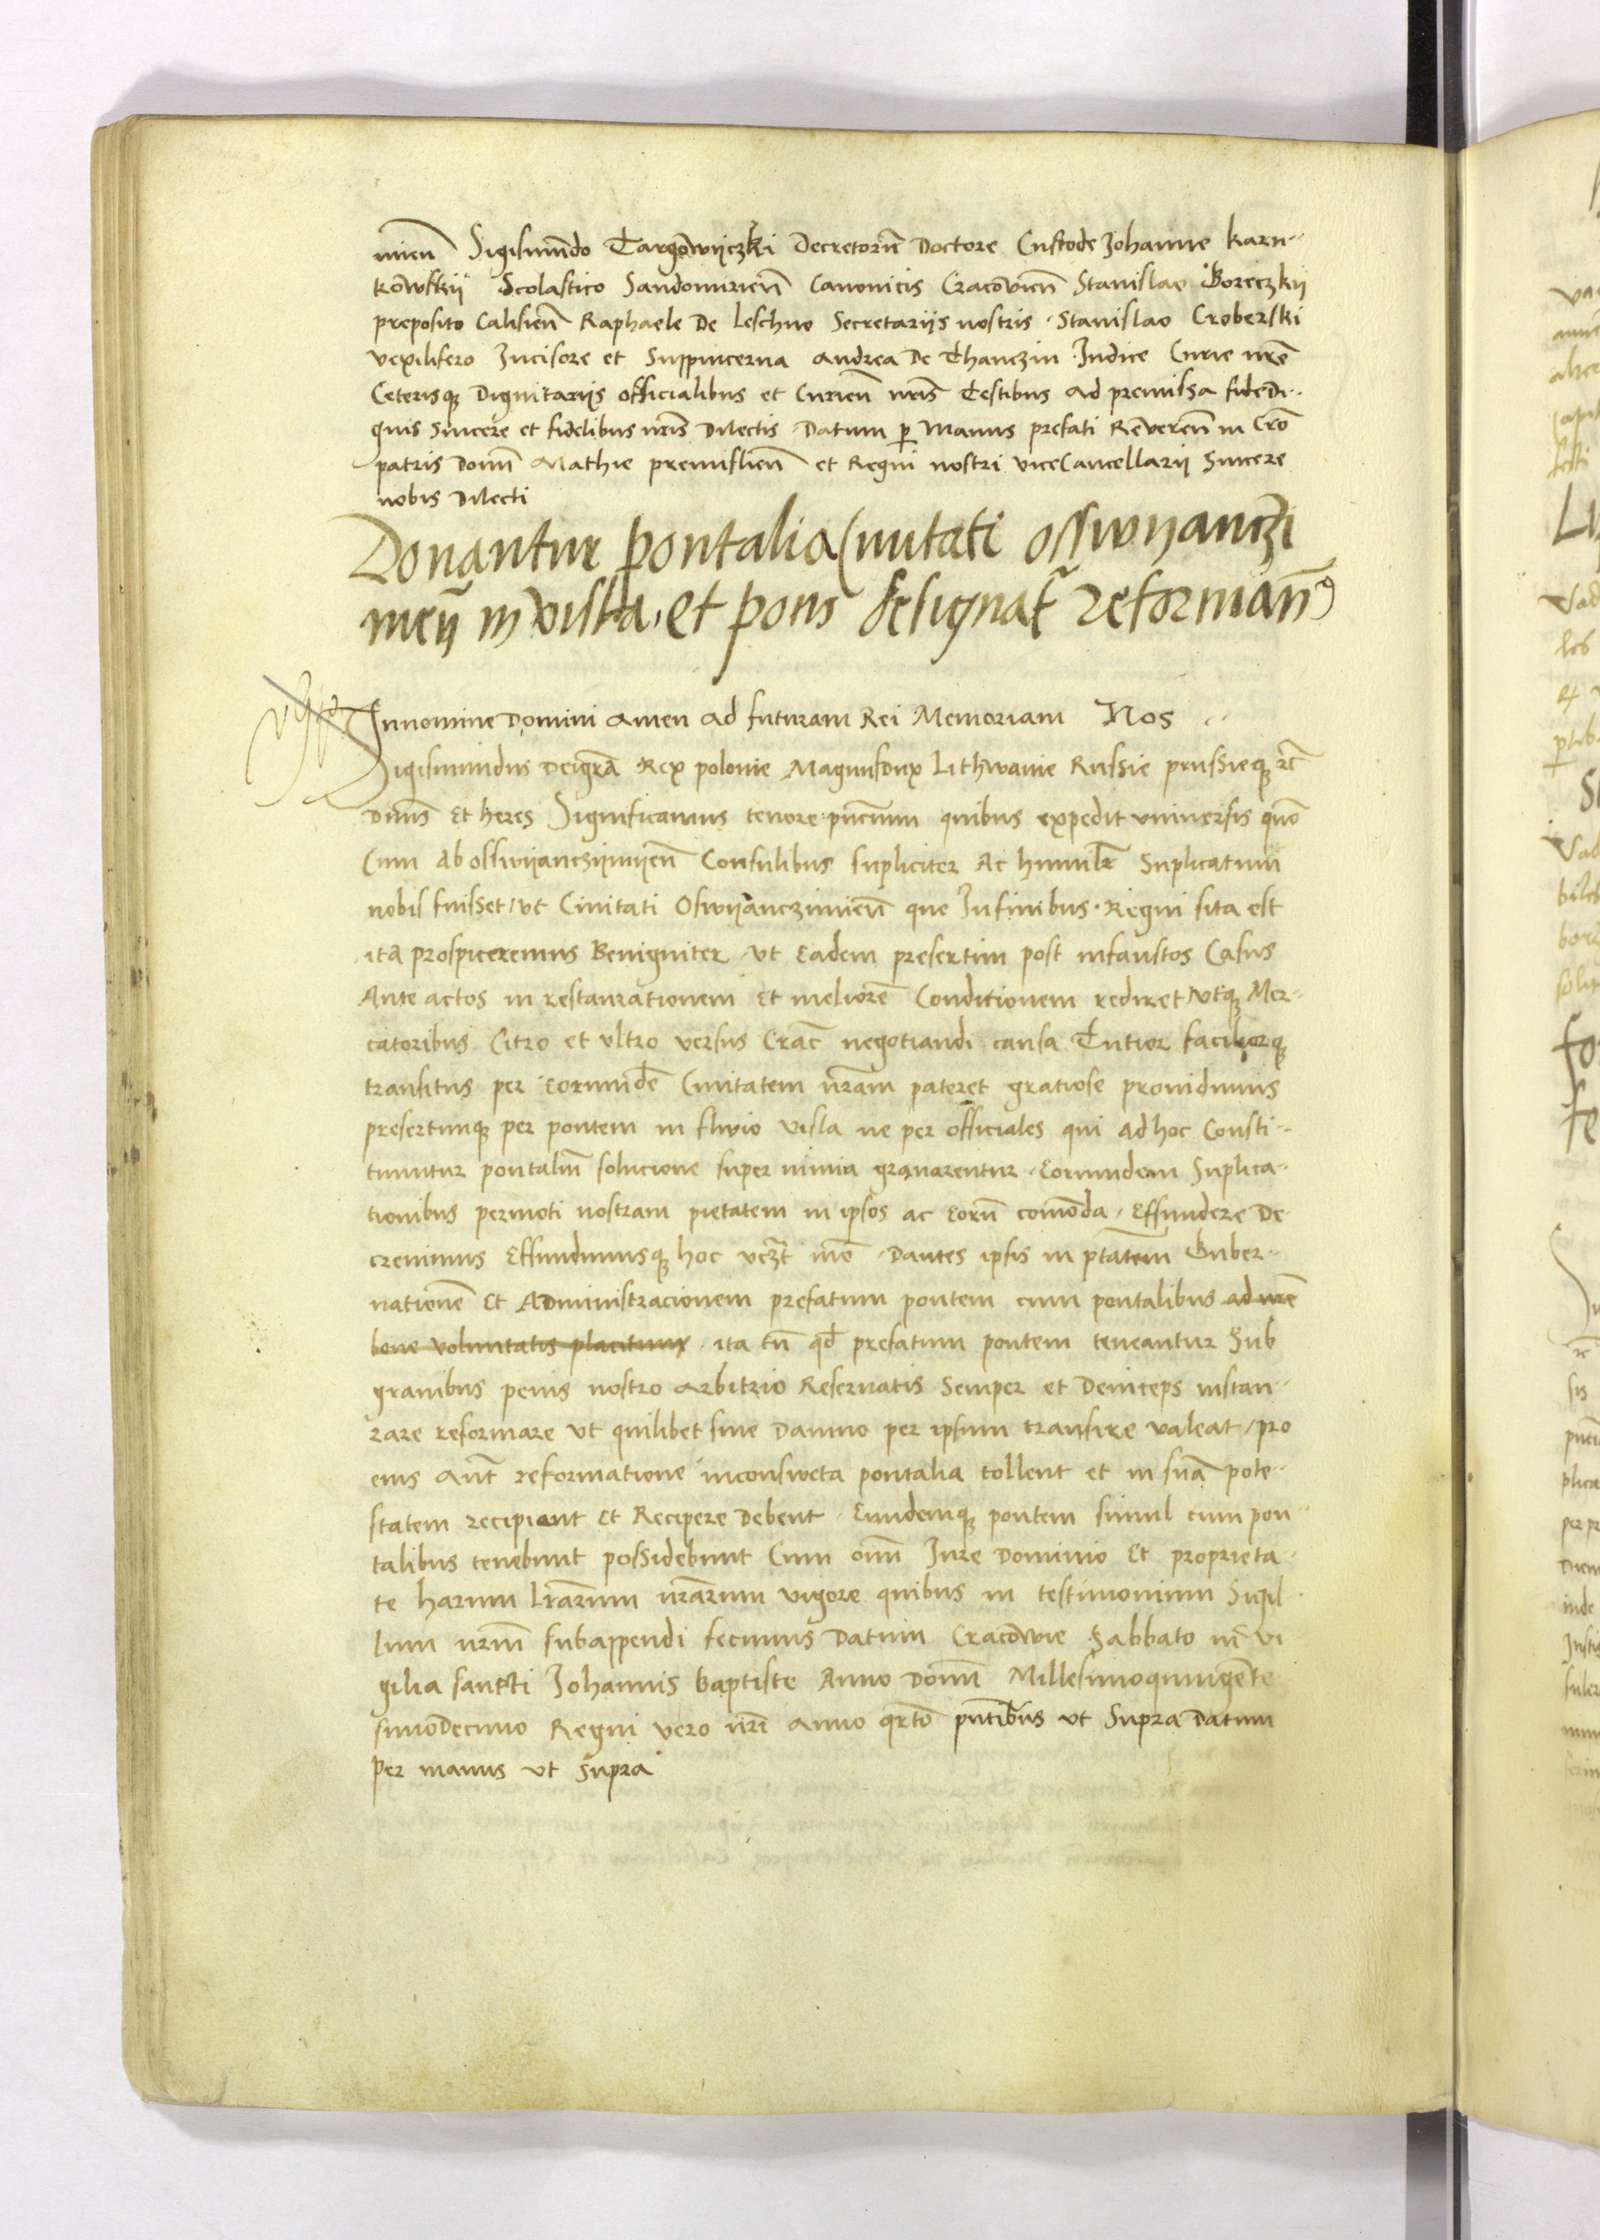 mien̄ Sigismūndo Targowyczki Decretorū Doctore Custode Johanne Karn-
kowskii Scolastico Sandomirien̄ Canonicis Cracovien̄ Stanislao Boreczkij
preposito Calisien̄ Raphaele De Leschno Secretariis nostris Stanislao Croberski
vexilifero Incisore et Suppincerna Andrea De Thanczin Judice Curie nr̄e
Ceterisqꝫ Dignitariis officialibus et Curien̄ nr̄is Testibus Ad premissa fide Di-
gnis Sincere et fidelibus nr̄is Dilectis Datum ꝑ Manus prefati Reveren̄ in Cr̄o
patris Domī Mathie premislien̄ et Regni nostri viceCancellarii Sincere
nobis Dilecti
Donantur pontalia Civitati osswyanczi
meñ in visla, et pons designat̄ reforman̄
In nomine Domini Amen Ad futuram Rei Memoriam Nos
Sigismundus Dei gr̄a Rex polonie Magnus Dux Lithwanie Russie prussieqꝫ ꝛc̄
Dn̄us et heres Significamus tenore pn̄cium quibus expedit universis quō
Cum Ab osswyanczijmyen̄ Consulibus supliciter Ac humilr̄ Suplicatum
nobis fuisset / ut Civitati Oswyanczimien̄ que In finibus Regni sita est
ita prospiceremus Benigniter ut Eadem presertim post infaustos Casus
Ante actos in restaurationem et meliorē Conditionem rediret / utqꝫ Mer-
catoribus Citro et ultro versus Crac̄ negotiandi causa Tutior faciliorqꝫ
transitus per Eorundē Civitatem nr̄am pateret gratiose providimus
presertimqꝫ per pontem in fluvio visla ne per officiales qui ad hoc Consti-
tuuntur pontaliū solucione super nimia gravarentur Eorundem Suplica-
tionibus permoti nostram pietatem in ipsos ac Eorū comōda Effundere De
crevimus Effundimusqꝫ hoc vcꝫt mō Dantes ipsis in pt̄atem Guber-
nationē Et Administracionem prefatum pontem cum pontalibus ad nr̄e
bene voluntatis placitum ita tn̄ qđ prefatum pontem teneantur Sub
gravibus penis nostro Arbitrio Reservatis Semper et Deinceps instau-
rare reformare ut quilibet sine Damno per ipsum transire valeat / pro
eius Aut̄ reformatione inconsueta pontalia tollent et in suā pote-
statem recipient Et Recipere Debent Eundemqꝫ pontem simul cum pon
talibus tenebunt possidebunt Cum omī Jure Dominio Et proprieta-
te harum Lr̄arum nr̄arum vigore quibus in testimonium Sigil
lum nr̄m subappendi fecimus Datum Cracovie Sabbato in vi
gilia sancti Johannis baptiste Anno Domī Millesimoquingente
simoDecimo Regni vero nr̄i Anno qrtō pn̄tibus ut Supra Datum
per manus ut Supra